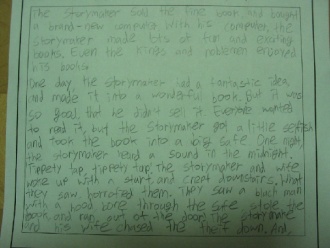 The Storymaker sold the fine book and bought
a brand-new computer. With his computer, the
storymaker made lots of fun and exciting
books. Even the Kings and noblemen enjoyed
his books.
One day the Storymaker had a fantastic idea,
and made it into a wonderful book. But it was
so good, that he didn't sell it. Everyone wanted
to read it, but the Storymaker got a little selfish
and took the book into a big safe. One night,
the storymaker heard a sound in the midnight.
Tippety tap, tippety tap, the Storymaker and wife
woke up with a start and crept downstairs. What
they saw, horrofied them. They saw a black man
with a bone through the safe stole the
book and ran out of the door. The storymaker
and his wife chased the thief down. And,